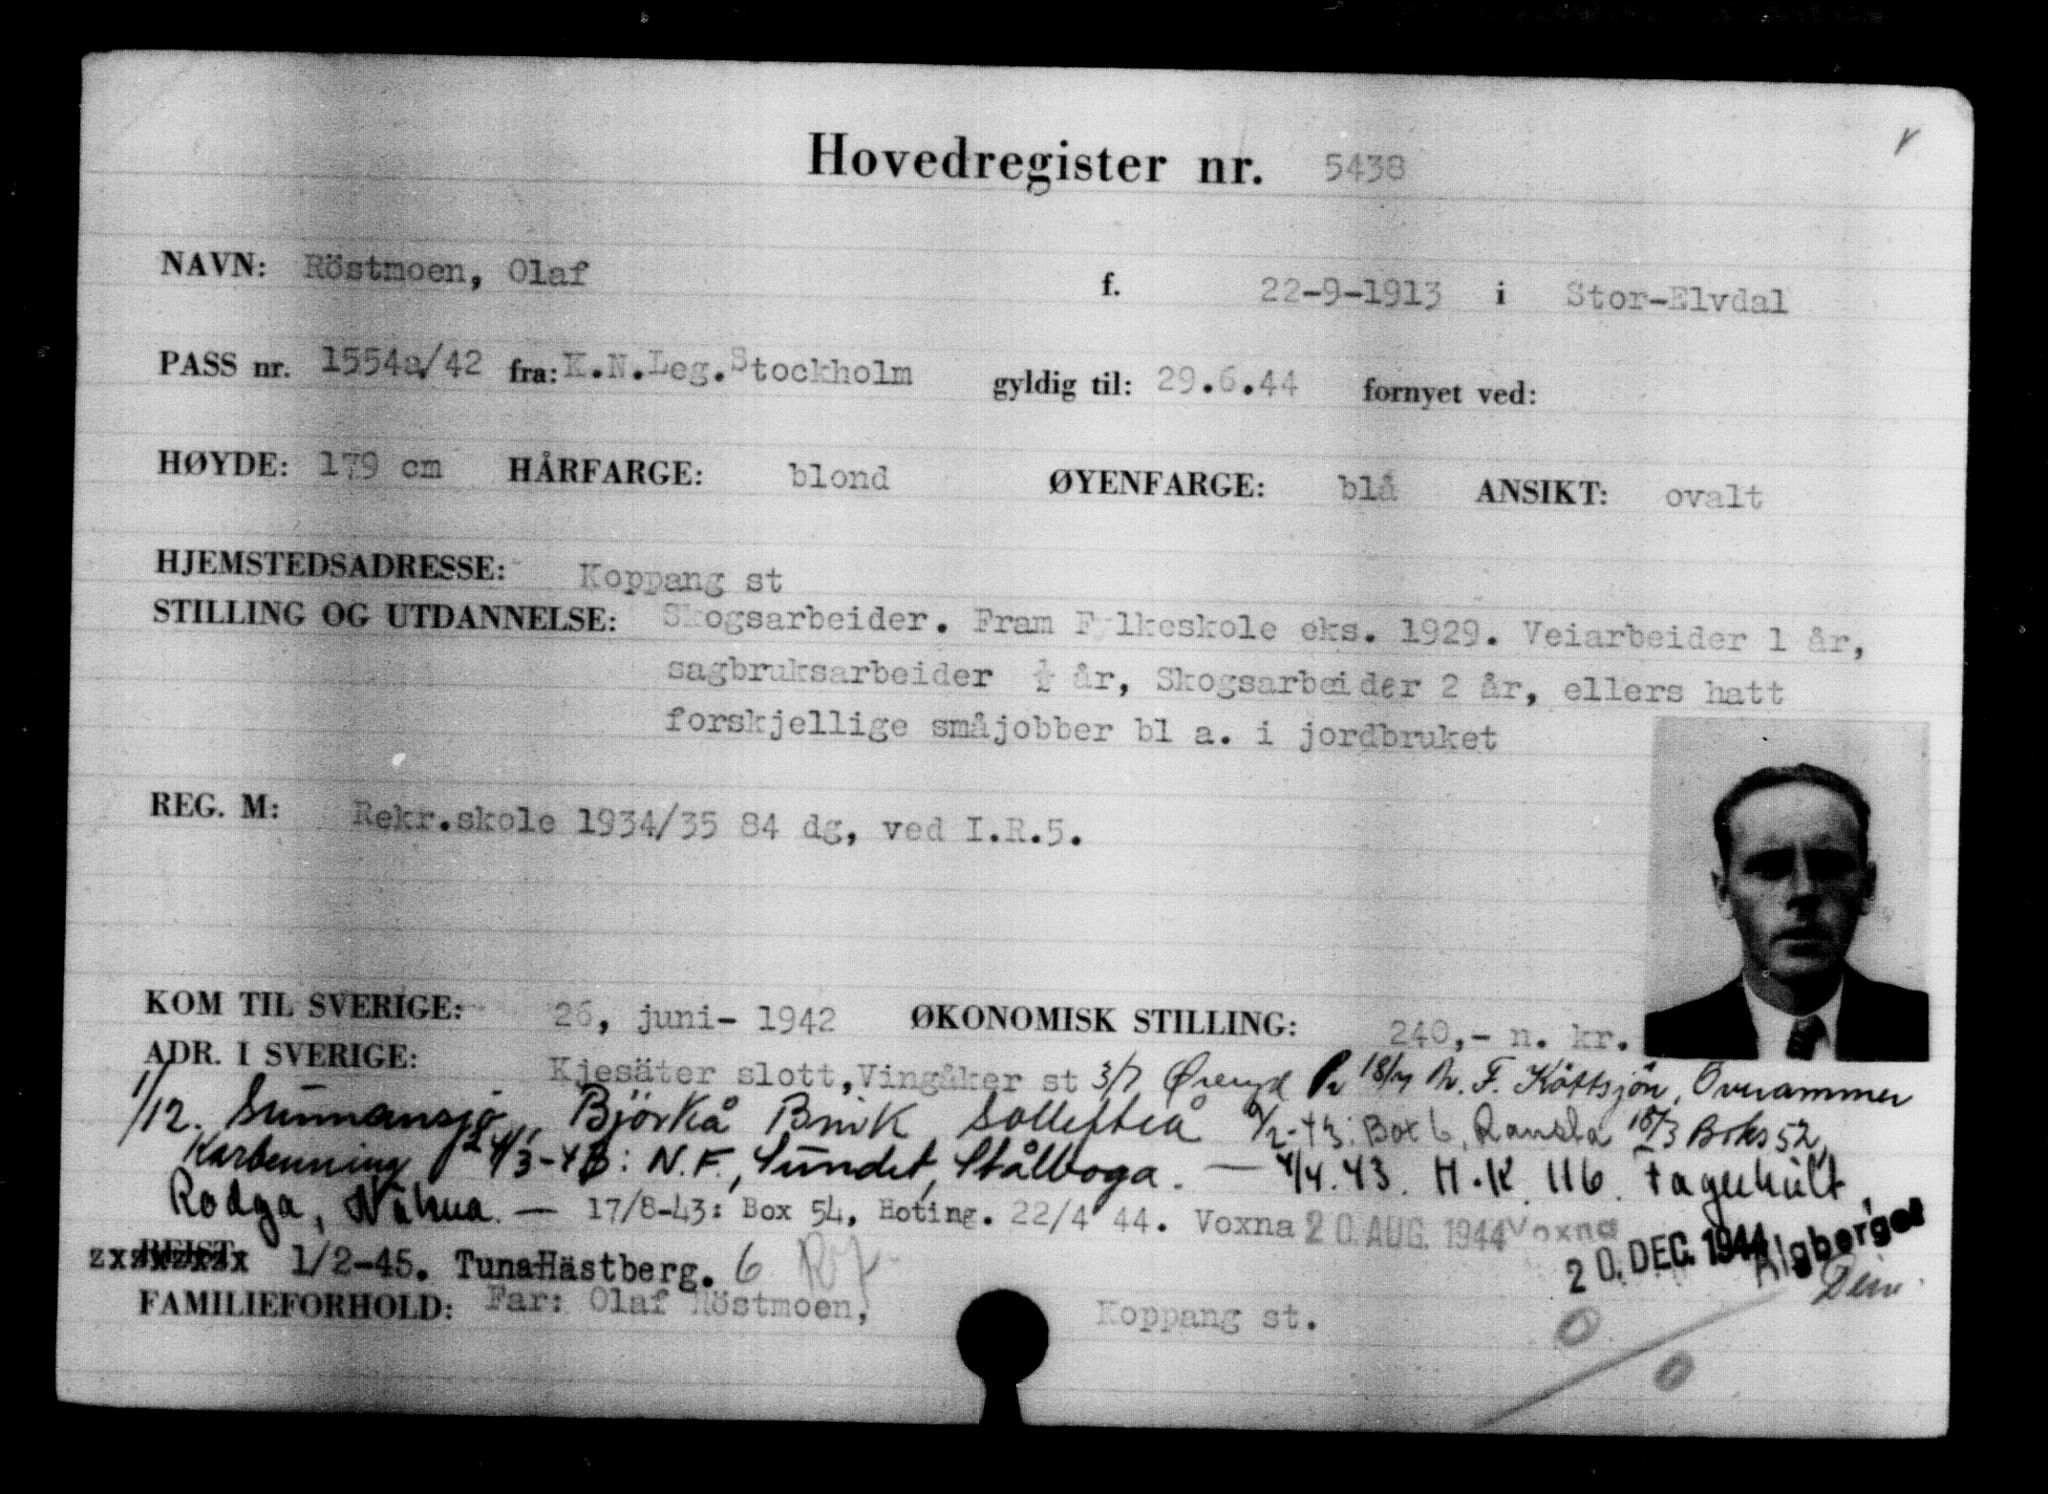 Hovedregister nr. 5438
NAVN: Röstmoen, Olaf f. 22-9-1913 i Stor-Elvdal
PASS nr. 1554a/42 fra: K.N.Leg.Stockholm gyldig til: 29.6.44 fornyet ved:
HØYDE: 179 cm HÅRFARGE: blond ØYENFARGE: blå ANSIKT: ovalt
HJEMSTEDSADRESSE: Koppang st
STILLING OG UTDANNELSE: Skogsarbeider. Fram Fylkeskole eks. 1929. Veiarbeider 1 år,
sagbruksarbeider ½ år, Skogsarbeider 2 år, ellers hatt
forskjellige småjobber bl a. i jordbruket
REG. M: Rekr.skole 1934/35 84 dg, ved I.R.5.
KOM TIL SVERIGE: 26, juni- 1942 ØKONOMISK STILLING: 240,- n. kr.
ADR. I SVERIGE: Kjesäter slott, Vingåker st 3/7 F. Kåttsjön, Överammer
1/12. Sunnansjö, Björkå Bruk Sollefteå /2-43: Box 6, Ransta 18/3 Boks 52,
Karbenning 24/3-43: N.F., Sundet, Stålboga. — 4/4.43. H.K. 116. Tagelhult,
Rodga, — 17/8-43: Box 54, Hoting. 22/4 44. Voxna 20. AUG. 1944 Voxna
REIST: 1/2-45. Tuna-Hästberg. 6 20. DEC. 1944 Algberget
FAMILIEFORHOLD: Far: Olaf Röstmoen, Koppang st.